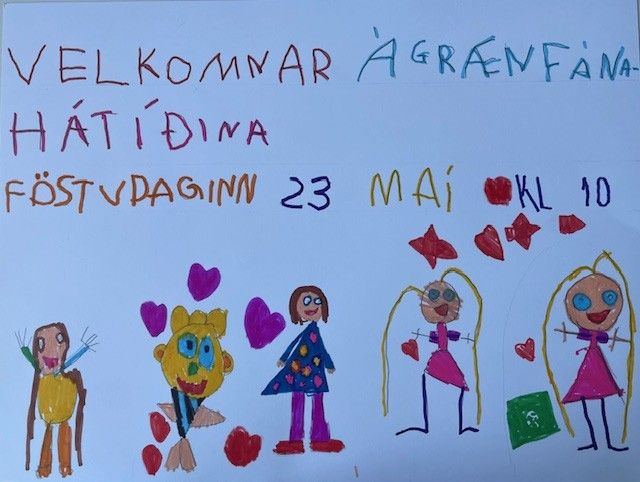 VELKOMNAR Á GRÆNFÁNA-
HÁTÍÐINA
FÖSTUDAGINN 23 MAÍ KL 10